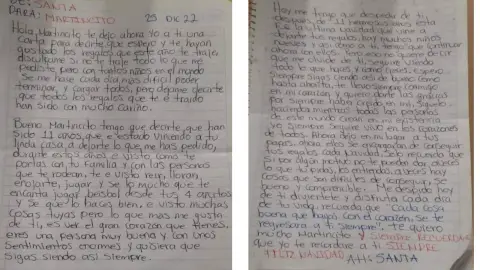 DE: SANTA
PARA: MARTINCITO 23 DIC 22
Hola Martincito te dejo ahora yo a ti una
carta para decirte que espero y te hayan
gustado los regalos que este año te traje,
discúlpame si no te traje todo lo que me
pediste, pero con tantos niños en el mundo
se me hace cada día más difícil poder
terminar, y cargar todos, pero déjame decirte
que todos los regalos que te e traído
han sido con mucho cariño.
Bueno Martincito tengo que decirte que han
sido 11 años que e estado viniendo a tu
linda casa, a dejarte lo que me has pedido,
durante estos años e visto como te
portas con tu familia y con las personas
que te rodean, te e visto reir, llorar,
enojarte, jugar y se lo mucho que te
encanta jugar beisbol desde tus 4 añitos
y se que lo haces bien, e visto muchas
cosas tuyas pero lo que más me gusta
de ti, es ver el gran corazón que tienes,
eres una persona muy buena y con unos
sentimientos enormes y quisiera que
sigas siendo así siempre.
Hoy me tengo que despedir de ti
después de 11 hermosos años esta
fue la última navidad que vine a
dejarte tus regalos, hay muchos niños
nuevos y así como a ti tengo que continuar
ahora con ellos, pero no quiere decir
que me olvide de ti, seguiré viendo
todo lo que hagas y como creces, espero
siempre sigas siendo así de bueno como
hasta ahorita, te llevo siempre conmigo
en mi corazón y quiero darte las gracias
por siempre haber creído en mi. Sigue
haciendo mientras todas las personas
de este mundo crean en mi existencia
yo siempre seguiré vivo en los corazones
de todos. Ahora dejo en mi lugar a tus
papás, ahora ellos se encargarán de conseguir
tus regalos cada navidad. Solo recuerda que
si por algún motivo no te pueden dar
lo que tu pidas, les entiendas, a veces hay
cosas que son difícil es de conseguir, se
bueno y comprensible. Me despido hoy
de ti diviértete y disfruta cada día
de tu vida, recuerda que cada cosa
buena que hagas con el corazón, se te
regresara a ti siempre!. Te quiero
mucho Martincito y SIEMPRE RECUERDA
que yo te recordare a ti SIEMPRE
FELIZ NAVIDAD ATTE SANTA